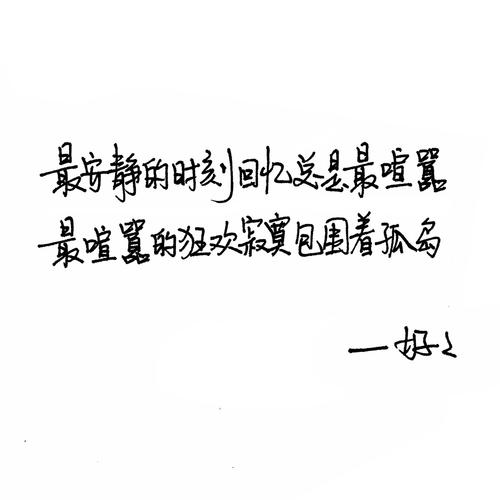 最安静的时刻回忆总是最喧嚣
最喧嚣的狂欢寂寞包围着孤岛
一好々